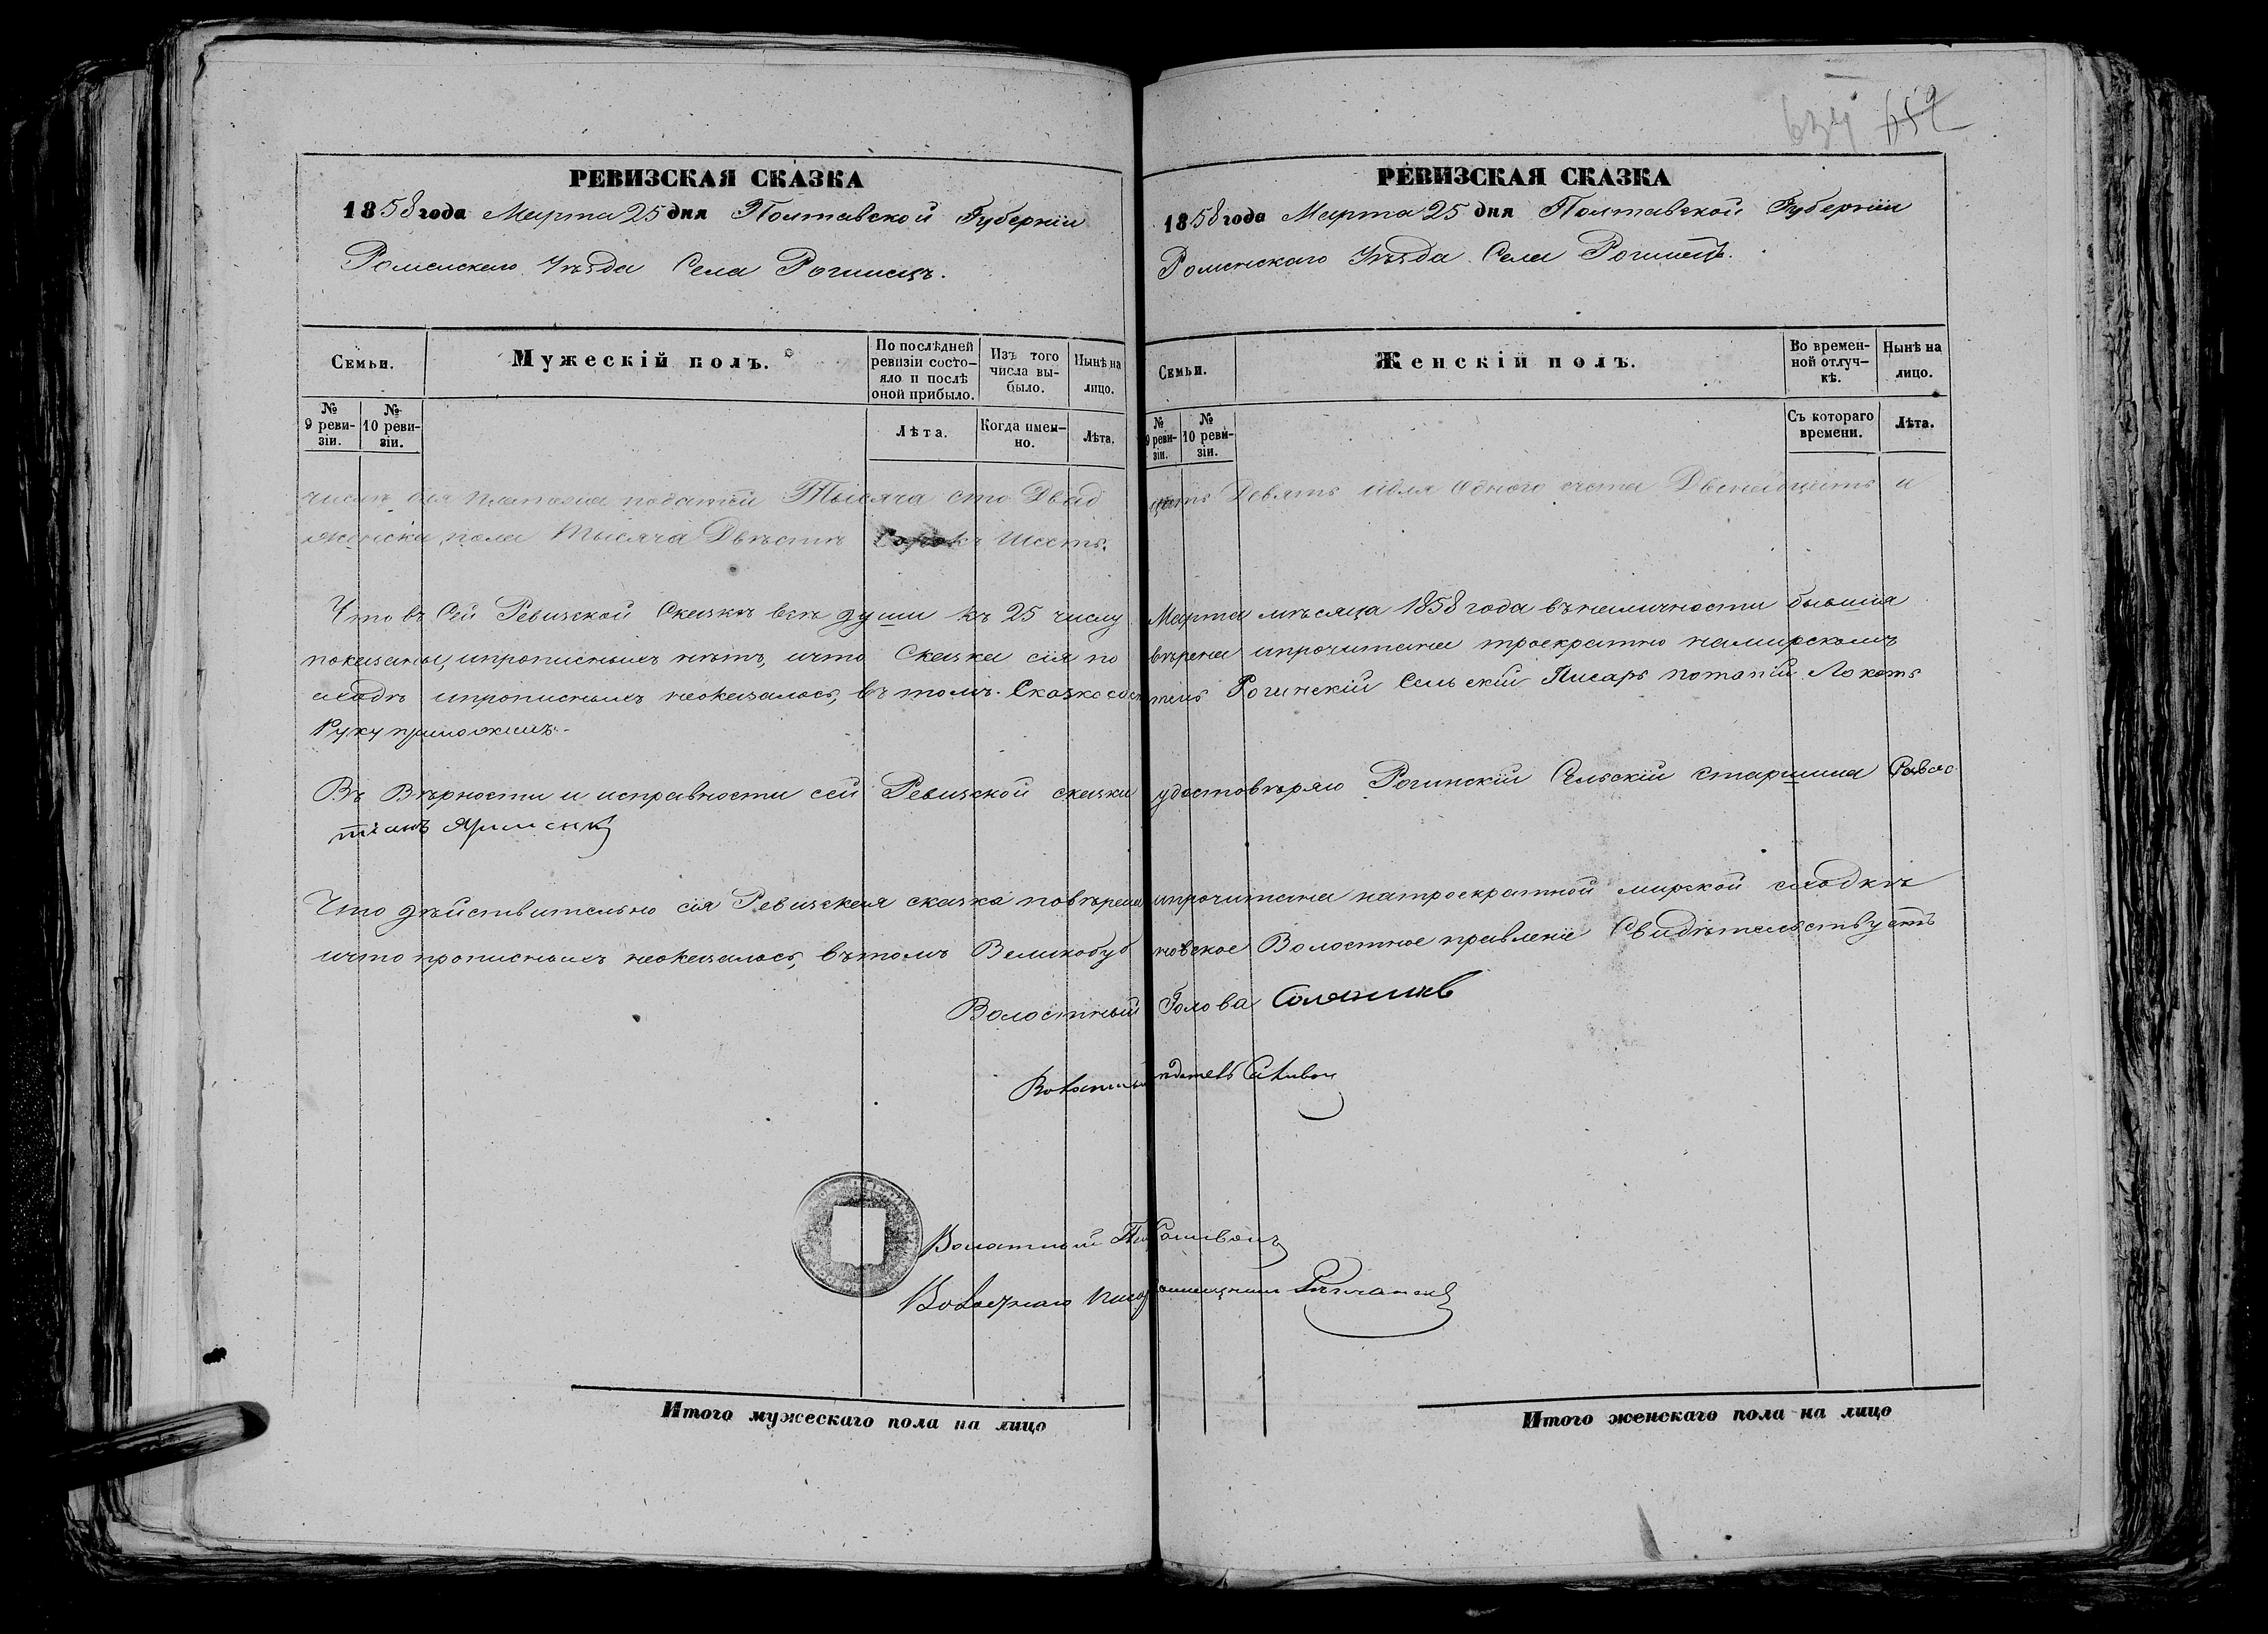 634 652
РЕВИЗСКАЯ СКАЗКА
1858 года Марта 25 дня Полтавской Губерніи
Роменскаго Уѣзда Села Рогинецъ.
Семьи.
Мужескій полъ.
По послѣдней ревизіи состо-
яло и послѣ
оной прибыло.
Изъ того
числа вы-
было.
Нынѣ на
лицо.
№
9 реви-
зіи.
№
10 реви-
зіи.
Лѣта.
Когда имен-
но.
Лѣта.
РЕВИЗСКАЯ СКАЗКА
1858 года Марта 25 дня Полтавской Губерніи
Роменскаго Уѣзда Села Рогинецъ.
Семьи.
Женскій полъ.
Во времен-
ной отлуч-
кѣ.
Нынѣ на
лицо.
№
9 реви-
зіи.
№
10 реви-
зіи.
Съ котораго
времени.
Лѣта.
числѣ для платежа податей Тысяча сто Двад цать Девять идля Одного счета Двенадцать и
женска пола Тысяча Двѣстѣ Сорокъ Шесть.
Что въ Сей Ревизской Сказкѣ всѣ души къ 25 числу Марта мѣсяца 1858 года въналичности бывшія
показаны, ипрописныхъ нѣтъ, ичто Сказка сія по вѣрена ипрочитана троекратно намирскомъ
сходѣ ипрописныхъ неоказалось, въ томъ Сказкосос тель Рогинскій Сельскій Писарь потапій Локоть
Руку приложилъ.
Въ Вѣрности и исправности сей Ревизской сказки удостовѣряю Рогинскій Сельскій старшина Савос
тіанъ
Что дѣйствительно сія Ревизская сказка повѣрена ипрочитана натроекратной мирской сходкѣ
ичто прописныхъ неоказалось, вътомъ Великобуб новское Волостное правленіе Свидѣтельствуетъ
Волостный Голова
Волостный
Волостной
Волостнаго
Итого мужескаго пола на лицо
Итого женскаго пола на лицо